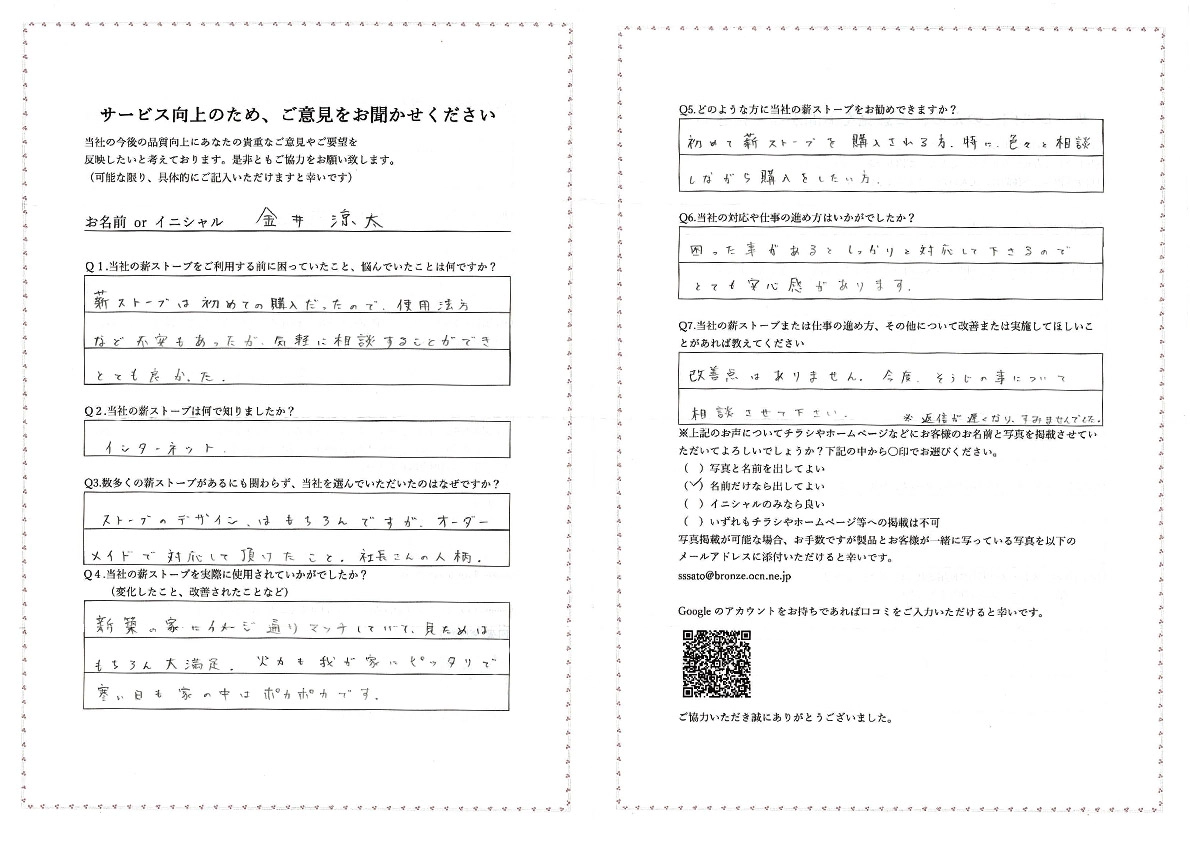 サービス向上のため、ご意見をお聞かせください
当社の今後の品質向上にあなたの貴重なご意見やご要望を
反映したいと考えております。是非ともご協力をお願い致します。
（可能な限り、具体的にご記入いただけますと幸いです）
お名前 or イニシャル 金井 涼太
Q１.当社の薪ストーブをご利用する前に困っていたこと、悩んでいたことは何ですか？
薪ストーブは初めての購入だったので、使用法方
など不安もあったが、気軽に相談することができ
とても良かった．
Q２.当社の薪ストーブは何で知りましたか？
インターネット．
Q3.数多くの薪ストーブがあるにも関わらず、当社を選んでいただいたのはなぜですか？
ストーブのデザイン、はもちろんですが、オーダー
メイドで対応して頂けたこと。社長さんの人柄．
Q４.当社の薪ストーブを実際に使用されていかがでしたか？
（変化したこと、改善されたことなど）
新築の家にイメージ通りマッチしていて、見ためは
もちろん大満足．火力も我が家にピッタリで
寒い日も家の中はポカポカです．
Q5.どのような方に当社の薪ストーブをお勧めできますか？
初めて薪ストーブを購入される方．特に、色々と相談
しながら購入をしたい方．
Q6.当社の対応や仕事の進め方はいかがでしたか？
困った事があるとしっかりと対応して下さるので
とても安心感があります．
Q7.当社の薪ストーブまたは仕事の進め方、その他について改善または実施してほしいこ
とがあれば教えてください
改善点はありません．今度、そうじの事について
相談させて下さい． ※返信が遅くなり、すみませんでした．
※上記のお声についてチラシやホームページなどにお客様のお名前と写真を掲載させてい
ただいてよろしいでしょうか？下記の中から〇印でお選びください。
（ ）写真と名前を出してよい
（✓）名前だけなら出してよい
（ ）イニシャルのみなら良い
（ ）いずれもチラシやホームページ等への掲載は不可
写真掲載が可能な場合、お手数ですが製品とお客様が一緒に写っている写真を以下の
メールアドレスに添付いただけると幸いです。
sssato@bronze.ocn.ne.jp
Google のアカウントをお持ちであれば口コミをご入力いただけると幸いです。
ご協力いただき誠にありがとうございました。